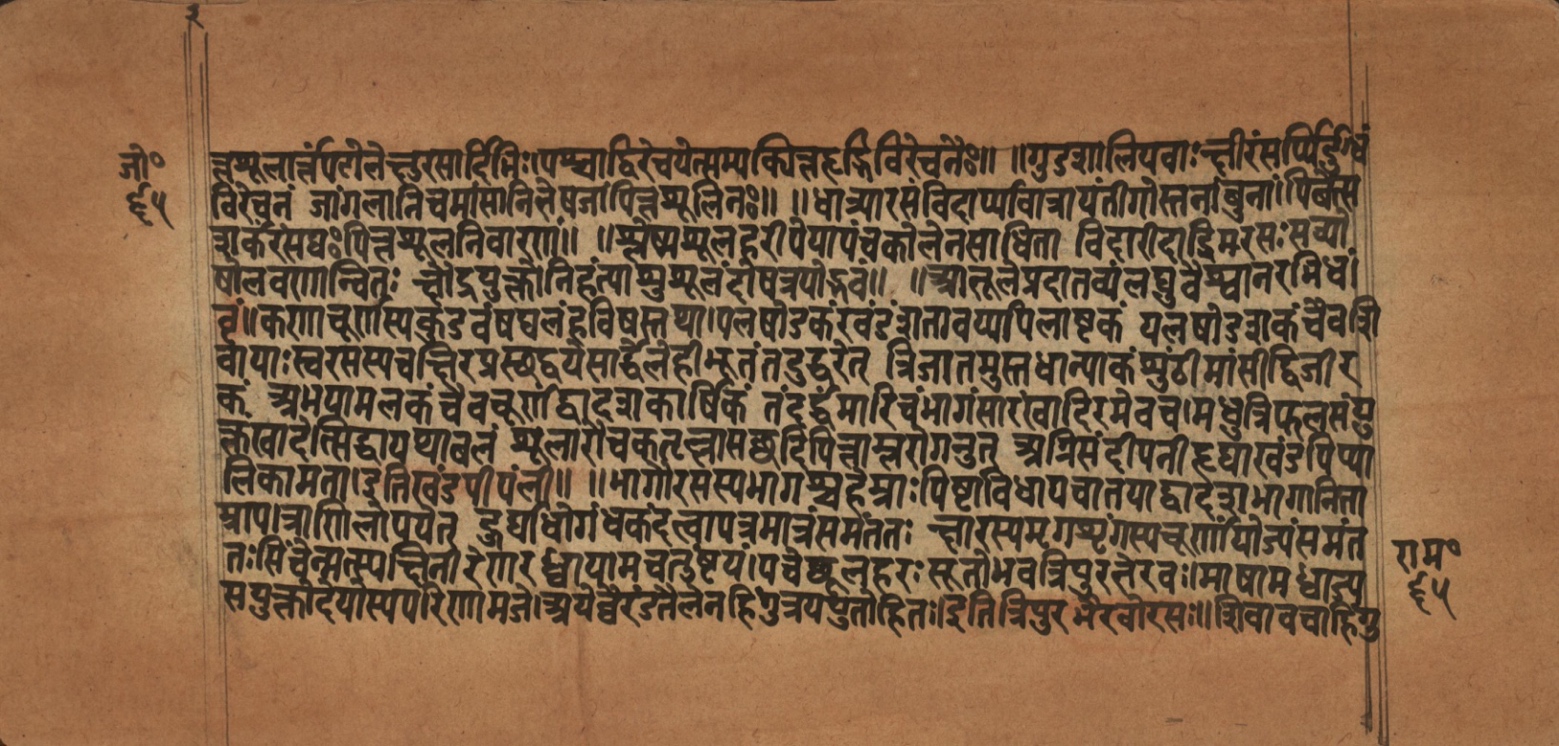 २
जो॰
६५
न्नशूलान्नंपटोलेक्षुरसादिभिः।पश्चाद्विरेचयेत्सम्यक्पित्तहृद्भिर्विरेचनैः॥ ॥गुडशालियवाःक्षीरंसर्पि
विरेचनं जांगलानिचमांसानिभेषजांपित्तशूलिनः॥ ॥धात्र्यारसंविदार्य्यावात्रायंतीगोस्तनांबुना।पिबेत्स
शर्करंसद्यःपित्तशूलनिवारणं॥ ॥श्लेष्मशूलहरीपेयापंचकोलेनसाधिता विदारीदाडिमरसःसव्यो
षोलवणान्वितः क्षौद्रयुक्तोनिहंत्याशुशूलंदोषत्रयोद्भवं॥ ॥आतूलेप्रदातव्यंलघुवैश्वानरभिधं।
कणाचूर्णस्यकुडवंषषलंहविषस्तथा।पलषोडकंखंडंशतावर्य्यपिलाष्टकं पलषोडशकंचैवशि
वायाःस्वरसस्यच क्षीरप्रस्थद्वयेसार्द्धेलेहीभूतंतदुद्धरेत् त्रिजातमुस्तधान्याकंशुंठीमांसीद्विजीर
कं अभयामलकंचैवचूर्णंद्वादशकार्षिकं तदर्द्धंमारिचंभागंसारंखादिरमेवच।मधुत्रिफलसंयु
क्तंखादेत्सिद्धायथाबलं शूलारोचकहृल्लासछर्दिपित्ताम्लरोगनुत् अग्निसंदीपनीहृद्याखंडपिप्प
लिकामता।इतिखंडपीपंली॥ ॥भागोरसस्यभागश्चहेम्नाःपिष्टाविधायचातयाद्वादशभागानिता
म्रपात्राणिलेपयेत् उर्द्ध्वाधोगंधकंदत्वापत्रमात्रंसमंततः क्षारस्यमृगशृंगस्यचूर्णंयोज्यंसमंत
तःसिंचेन्मत्स्यक्षिनीरेणरध्वायामचतुष्टयं।पचेच्छूलहरःसूतोभवेत्रिपुरभैरवः।माषामध्वाज्य
सयुक्तोदेयोस्यपरिणामजे।अन्येष्वेरंडतैलेनहिंगुत्रययुतोहितः।इतित्रिपुरभैरवोरसः॥शिवावचाहिंगु
राम॰
६५